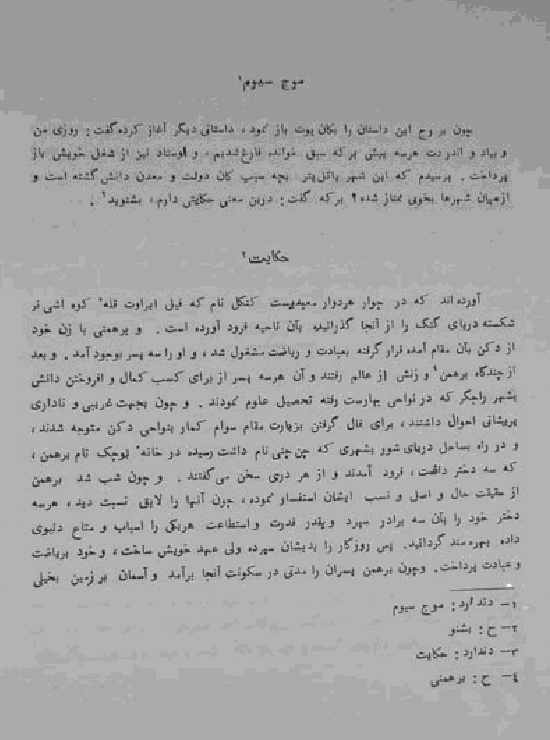 موج سیوم¹
چون بروج این داستان را بکان پوت باز نمود، داستانی دیگر آغاز کرده گفت: روزی من
و بیاد و اندردت هرسه پیش برکه سبق خوانده فارغ شدیم، و اوستاد نیز از شغل خویش باز
پرداخت. پرسیدم که این شهر پاتلی‌پتر بچه سبب کان دولت و معدن دانش گشته است و
از میان شهرها بخوبی ممتاز شده؟ برکه گفت: درین معنی حکایتی دارم، بشنوید² .
حکایت³
آورده‌اند که در جوار هردوار معبدیست کنکل نام که فیل ایراوت قله کوه اشی نر
شکسته دریای گنگ را از آنجا گذرانیده بآن ناحیه فرود آورده است. و برهمنی با زن خود
از دکن بآن مقام آمده قرار گرفته بعبادت و ریاضت مشغول شد، و او را سه پسر بوجود آمد. و بعد
از چندگاه برهمن⁴ و زنش از عالم رفتند و آن هرسه پسر از برای کسب کمال و افروختن دانش
بشهر راجگر که در نواحی بهارست رفته تحصیل علوم نمودند. و چون بجهت غریبی و ناداری
پریشانی احوال داشتند، برای فال گرفتن بزیارت مقام سوام کمار بنواحی دکن متوجه شدند،
و در راه بساحل دریای شور بشهری که چن چنی نام داشت رسیده در خانه بوجک نام برهمن،
که سه دختر داشت، فرود آمدند و از هر دری سخن می‌گفتند. و چون شب شد برهمن
از حقیقت حال و اصل و نسب ایشان استفسار نموده، چون آنها را لایق نسبت دید، هرسه
دختر خود را بآن سه برادر سپرد و بقدر قدرت و استطاعت هریکی را اسباب و متاع دنیوی
داده بهره‌مند گردانید. پس روزگار را بدیشان سپرده ولی عهد خویش ساخت، و خود بریاضت
و عبادت پرداخت. و چون برهمن پسران را مدتی در سکونت آنجا برآمد و آسمان بر زمین بخیلی
۱- د ندارد: موج سیوم
۲- ح: بشنو
۳- د ندارد: حکایت
۴- ح: برهمنی